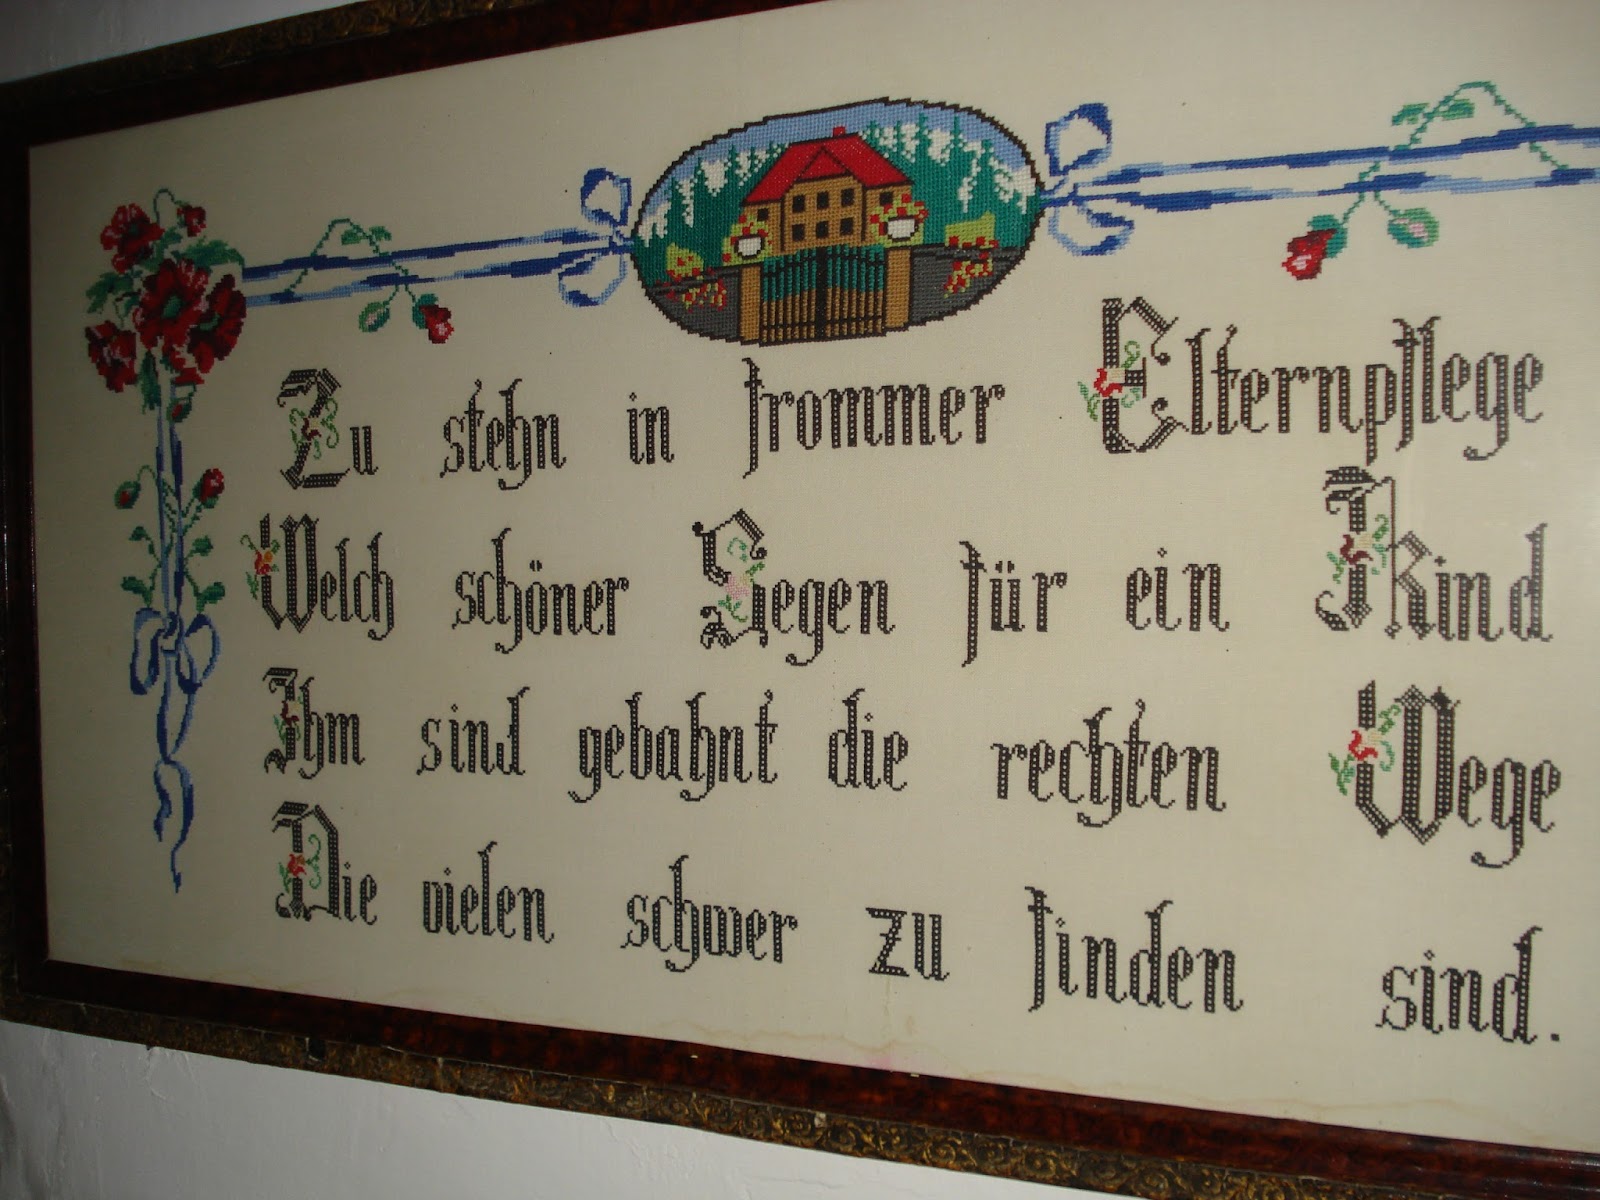 Zu stehn in frommer Elternpflege
Welch schöner Segen für ein Kind
Ihm sind gebahnt die rechten Wege
Die vielen schwer zu finden sind.